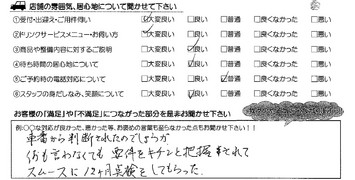 店舗の雰囲気、居心地について聞かせて下さい
①受付・出迎え・ご用件伺い □大変良い □良い □普通 □良くなかった □悪い
②ドリンクサービスメニューお伺い方 □大変良い □良い □普通 □良くなかった □悪い
③商品や整備内容に対するご説明 □大変良い □良い □普通 □良くなかった □悪い
④待ち時間の居心地について □大変良い □良い □普通 □良くなかった □悪い
⑤ご予約時の電話対応について □大変良い □良い □普通 □良くなかった □悪い
⑥スタッフの身だしなみ、笑顔について □大変良い □良い □普通 □良くなかった □悪い
お客様の「満足」や「不満足」につながった部分を是非お聞かせ下さい
例:〇〇な対応が良かった、悪かった等、お褒めの言葉も足らなかった点もお聞かせ下さい!!
車番から判断されたのでしょうか
何も言わなくても要件をキチンと把握されて
スムースに12ヶ月点検をしてもらった.